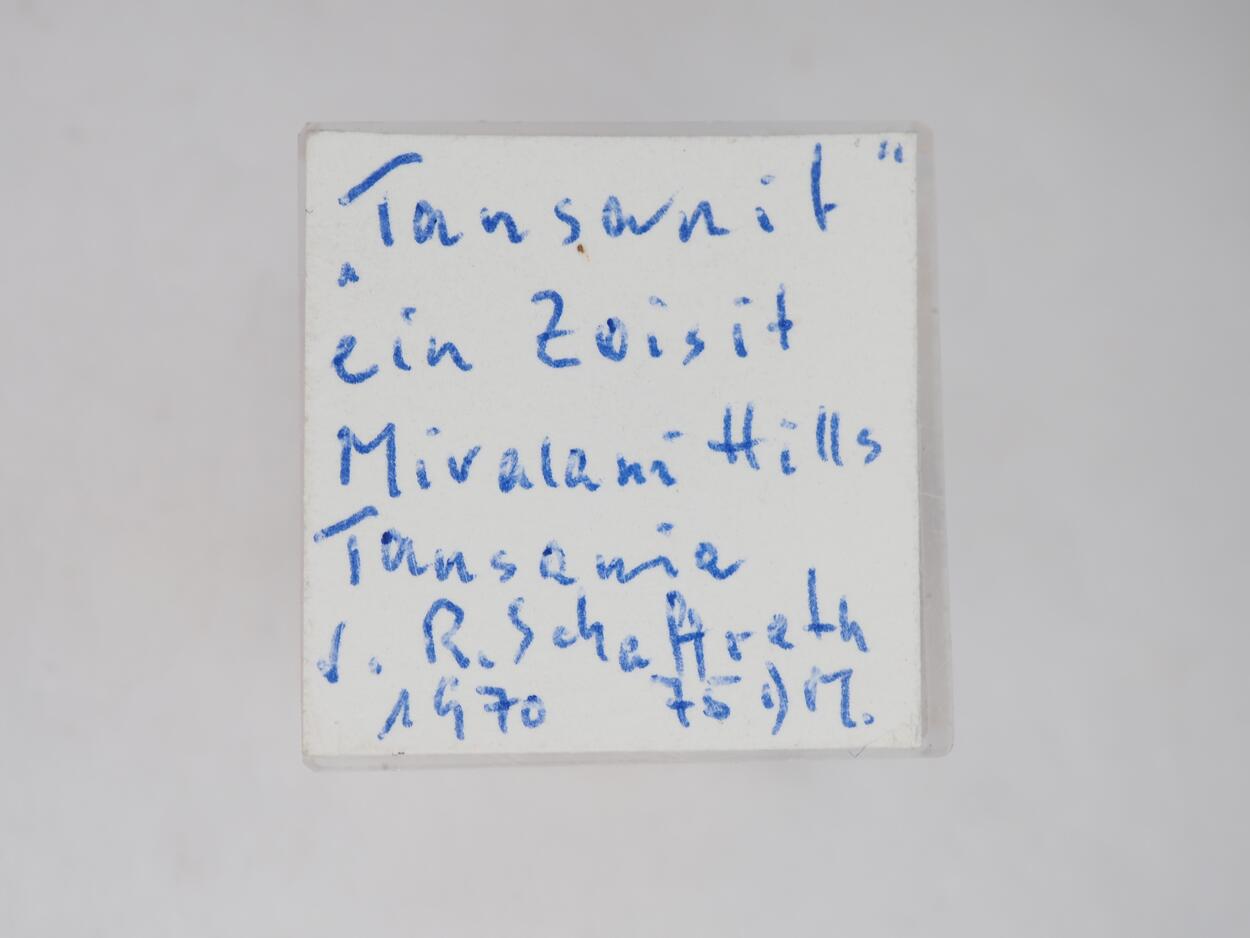 „Tansanit“
ein Zoisit
Miralani Hills
Tansania
d. R. Schaffrath
1970 75 DM.